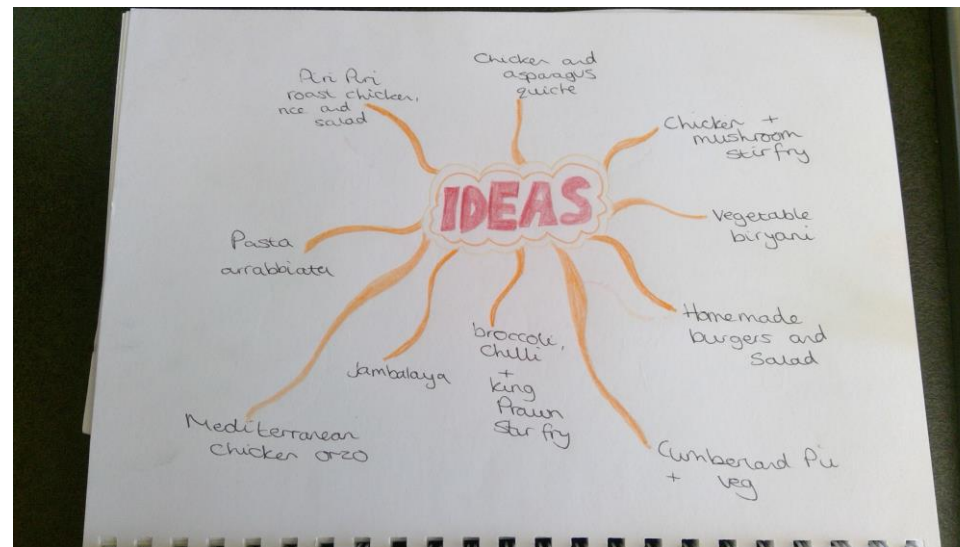 IDEAS
Piri Piri
roast chicken,
rice and
salad
Chicken and
asparagus
quiche
Chicken +
mushroom
stir fry
Vegetable
biryani
Homemade
burgers and
Salad
Cumberland Pie
+ veg
broccoli,
Chilli
+
king
Prawn
Stir fry
Jambalaya
Mediterranean
chicken orzo
Pasta
arrabbiata